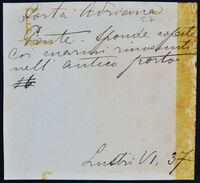 Porta Adriana
57
Ponte. Sponde coperte
coi marmi rinvenuti
nell'antico porto
Lustri VI, 37